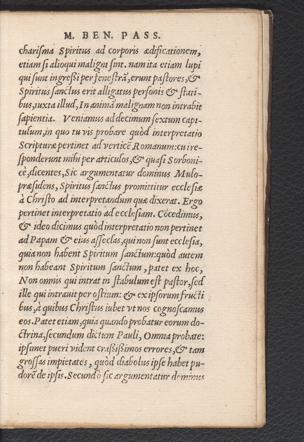 M. BEN. PASS.
charisma Spiritus ad corporis ædificationem,
etiam si alioqui maligni sint. nam ita etiam lupi
qui sunt ingreßi per fenestrã, erunt pastores, &
Spiritus sanctus erit alligatus personis & stati-
bus, iuxta illud, In animã malignam non intrabit
sapientia. Veniamus ad decimum sextum capi-
tulum, in quo tu vis probare quòd interpretatio
Scripturæ pertinet ad verticẽ Romanum: tu ire-
sponderunt mihi per articulos, & quasi Sorboni-
cè, dicentes, Sic argumentatur dominus Mulo-
præsidens, Spiritus sanctus promittitur ecclesiæ
à Christo ad interpretandum quæ dixerat. Ergo
pertinet interpretatio ad ecclesiam. Cõcedimus,
& ideo dicimus quòd interpretatio non pertinet
ad Papam & eius asseclas, qui non sunt ecclesia,
quia non habent Spiritum sanctum: quòd autem
non habeant Spiritum sanctum, patet ex hoc,
Non omnis qui intrat in stabulum est pastor, sed
ille qui intrauit per ostium: & ex ipsorum fructi
bus, à quibus Christus iubet vt nos cognoscamus
eos. Patet etiam, quia quando probatur eorum do-
ctrina, secundum dictum Pauli, Omnia probate:
ipsimet pueri vident craßißimos errores, & tam
grossas impietates, quòd diabolus ipse habet pu-
dorẽ de ipsis. Secundò sic argumentatur dominus